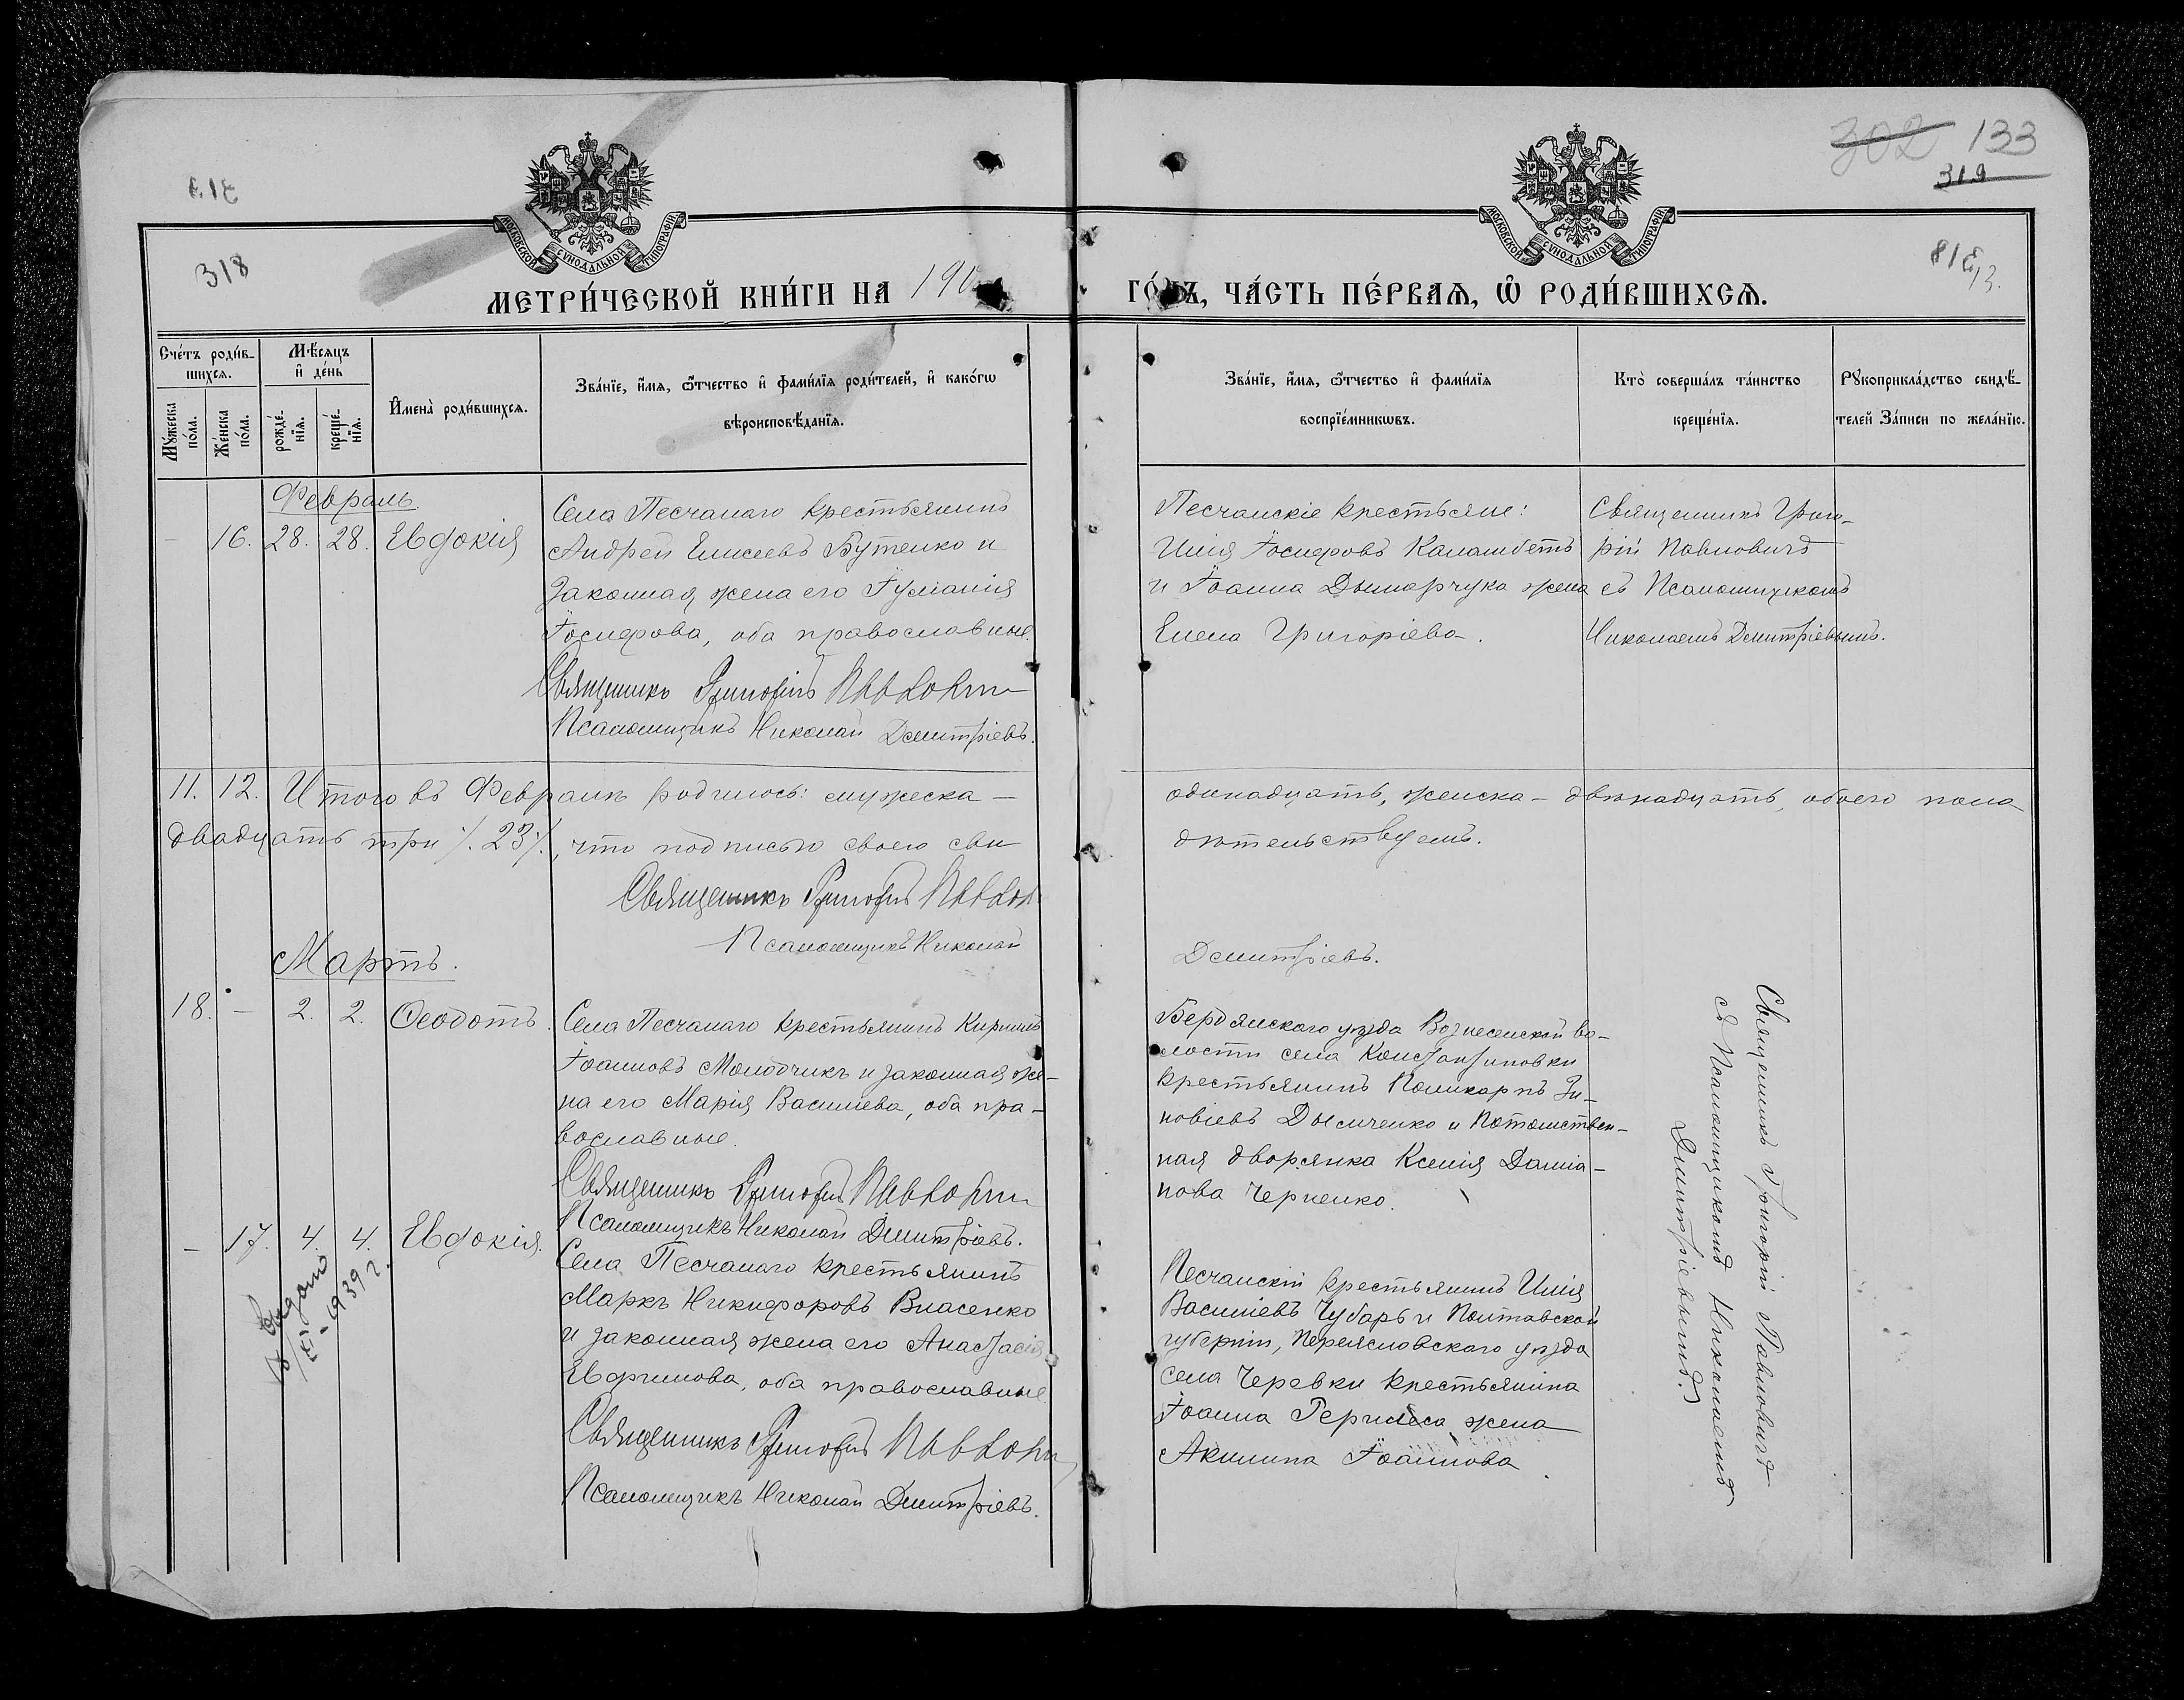 302 133
319
318
МОСКОВСКОЙ СУНОДАЛЬНОЙ ТИПОГРАФІИ
МОСКОВСКОЙ СУНОДАЛЬНОЙ ТИПОГРАФІИ
МЕТРИ́ЧЕСКОЙ КНИ́ГИ НА 190
ГО́ДЪ, ЧА́СТЬ ПЕ́РВАѦ, Ѿ РОДИ́ВШИХСѦ.
Сче́тъ роди́в-
шихсѧ.
Мѣ́сѧцъ
и҆ де́нь
Мꙋ́жеска
по́ла.
Же́нска
по́ла.
рожде́-
нїѧ.
креще́-
нїѧ.
И҆мена̀ роди́вшихсѧ.
Зва́нїе, и҆́мѧ, ѻ҆́тчество и҆ фами́лїѧ роди́телей, и҆ како́гѡ
вѣроисповѣ́данїѧ.
Зва́нїе, и҆́мѧ, ѻ҆́тчество и҆ фами́лїѧ
воспрїе́мникѡвъ.
Кто̀ соверша́лъ та́инство
креще́нїѧ.
Рꙋкоприкла́дство свидѣ́-
телей За́писи по жела́нїю.
Февраль
- 16. 28. 28. Евдокія
Села Песчанаго крестьянинъ
Андрей Елисеевъ Бутенко и
законная жена его Іуліанія
Іосифова, оба православные.
Священникъ Григорій Павлович
Псаломщикъ Николай Димитріевъ.
Песчанскіе крестьяне:
Илія Іосифовъ Каламбетъ
и Іоанна Дымарчука жена
Елена Григоріева.
Священникъ Григо-
рій Павловичъ
съ Псаломщикомъ
Николаемъ Димитріевымъ.
11. 12. Итого въ Февралѣ родилось: мужеска — одинадцать, женска — двѣнадцать, обоего пола
двадцать три /. 23 /., что подписью своею сви дѣтельствуемъ.
Священникъ Григорій Павлович
Псаломщикъ Николай Димитріевъ.
Мартъ.
18. - 2. 2. Ѳеодотъ.
Села Песчанаго крестьянинъ Кириллъ
Іоанновъ Молодчикъ и законная же-
на его Марія Василіева, оба пра-
вославные.
Священникъ Григорій Павлович
Псаломщикъ Николай Димитріевъ.
Бердянскаго уѣзда Вознесенской во-
лости села Константиновки
крестьянинъ Поликарпъ Зи-
новіевъ Дымченко и Потомствен-
ная дворянка Ксенія Даміа-
нова Черненко.
- 17. 4. 4. Евдокія.
Выдано
1939 г.
Села Песчанаго крестьянинъ
Маркъ Никифоровъ Власенко
и законная жена его Анастасія
Евфимова, оба православные
Священникъ Григорій Павлович
Псаломщикъ Николай Димитріевъ.
Песчанскій крестьянинъ Илія
Василіевъ Чубарь и Полтавской
губерніи, Переяславскаго уѣзда
села Черевки крестьянина
Іоанна жена
Акилина Іоаннова
Священникъ Григорій Павловичъ
съ Псаломщикомъ Николаемъ
Димитріевымъ.